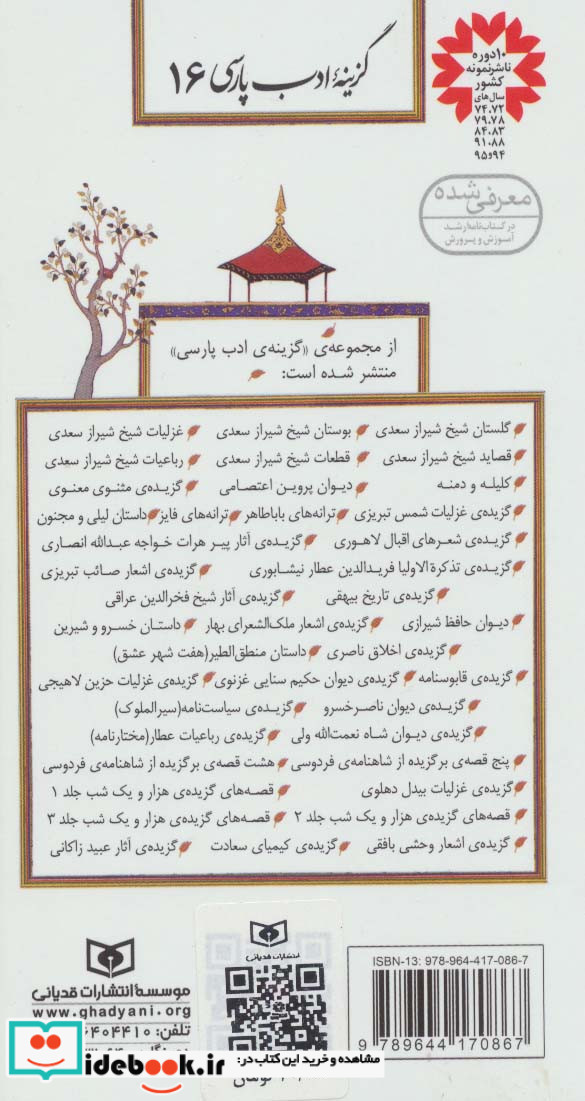 گزینهٔ ادب پارسی ۱۶
۱۰ دوره
ناشر نمونه
کشور
سال‌های
۷۴.۷۲
۷۹.۷۸
۸۴.۸۳
۹۱.۸۸
۹۴و۹۵
معرفی شده
در کتاب‌نامه رشد
آموزش و پرورش
از مجموعه‌ی «گزینه‌ی ادب پارسی»
منتشر شده است:
گلستان شیخ شیراز سعدی بوستان شیخ شیراز سعدی غزلیات شیخ شیراز سعدی
قصاید شیخ شیراز سعدی قطعات شیخ شیراز سعدی رباعیات شیخ شیراز سعدی
کلیله و دمنه دیوان پروین اعتصامی گزیده‌ی مثنوی معنوی
گزیده‌ی غزلیات شمس تبریزی ترانه‌های باباطاهر ترانه‌های فایز داستان لیلی و مجنون
گزیده‌ی شعرهای اقبال لاهوری گزیده‌ی آثار پیر هرات خواجه عبدالله انصاری
گزیده‌ی تذکرة‌الاولیا فریدالدین عطار نیشابوری گزیده‌ی اشعار صائب تبریزی
گزیده‌ی تاریخ بیهقی گزیده‌ی آثار شیخ فخرالدین عراقی
دیوان حافظ شیرازی گزیده‌ی اشعار ملک‌الشعرای بهار داستان خسرو و شیرین
گزیده‌ی اخلاق ناصری داستان منطق‌الطیر(هفت شهر عشق)
گزیده‌ی قابوسنامه گزیده‌ی دیوان حکیم سنایی غزنوی گزیده‌ی غزلیات حزین لاهیجی
گزیده‌ی دیوان ناصرخسرو گزیده‌ی سیاست‌نامه(سیرالملوک)
گزیده‌ی دیوان شاه نعمت‌الله ولی گزیده‌ی رباعیات عطار(مختارنامه)
پنج قصه‌ی برگزیده از شاهنامه‌ی فردوسی هشت قصه‌ی برگزیده از شاهنامه‌ی فردوسی
گزیده‌ی غزلیات بیدل دهلوی قصه‌های گزیده‌ی هزار و یک شب جلد ۱
قصه‌های گزیده‌ی هزار و یک شب جلد ۲ قصه‌های گزیده‌ی هزار و یک شب جلد ۳
گزیده‌ی اشعار وحشی بافقی گزیده‌ی کیمیای سعادت گزیده‌ی آثار عبید زاکانی
ISBN-13: 978-964-417-086-7
9 789644 170867
انتشارات قدیانی
موسسهٔ انتشارات قدیانی
www.ghadyani.org
تلفن: ۶۶۴۰۴۴۱۰
مشاهده و خرید این کتاب در:
idebook.ir
تومان